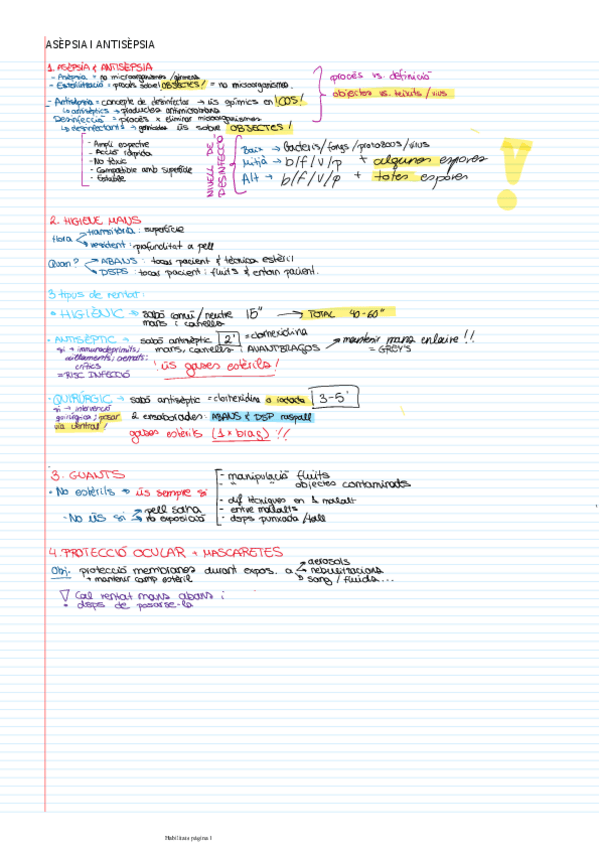 ASÈPSIA I ANTISÈPSIA
1. ASÈPSIA & ANTISÈPSIA
- Asèpsia = no microorganismes / gèrmens
- Esterilització = procés sobre OBJECTES! = no microorganismes.
procés vs. definició
objectes vs. teixits / vius
- Antisèpsia = concepte de desinfectar → ús químics en COS!
↳ antisèptics → productes antimicrobians
Desinfecció = procés x eliminar microorganismes
↳ desinfectants → ús sobre OBJECTES!
- Ampli espectre
- Acció ràpida
- No tòxic
- Compatible amb superfície
- Estable
NIVELL DE DESINFECCIÓ
Baix → bacteris / fongs / protozous / virus
Mitjà → b/f/v/p + algunes espores
Alt → b/f/v/p + totes espores
!
2. HIGIENE MANS
flora
transitòria: superfície
resident: profunditat a pell
Quan?
→ ABANS: tocar pacient & tècnica estèril
→ DSPS: tocar pacient; fluids & entorn pacient.
3 tipus de rentat:
• HIGIÈNIC → sabó comú / neutre 15" → TOTAL 40-60"
mans i canells
• ANTISÈPTIC → sabó antisèptic 2' = clorhexidina
si → immunodeprimits,
mans, canells i AVANTBRAÇOS → mantenir mans enlaire!!
= GREY'S
crítics
= RISC INFECCIÓ
ús gases estèrils!
• QUIRÚRGIC → sabó antisèptic = clorhexidina o iodada 3-5'
si → intervenció
quirúrgica; posar
via central!
2 ensabonades: ABANS & DSP raspall
gases estèrils (1 x braç)!!
3. GUANTS
• No estèrils → ús sempre si
- manipulació fluids
- " " objectes contaminats
• No ús si → pell sana
→ no exposició
- dif tècniques en 1 malalt
- entre malalts
- dsps punxada / tall
4. PROTECCIÓ OCULAR + MASCARETES
Obj. protecció membranes durant expos. a
→ aerosols
→ nebulitzacions
→ sang / fluids...
→ mantenir camp estèril
▽ Cal rentat mans abans i
• dsps de posar-se-la
Habilitats página 1